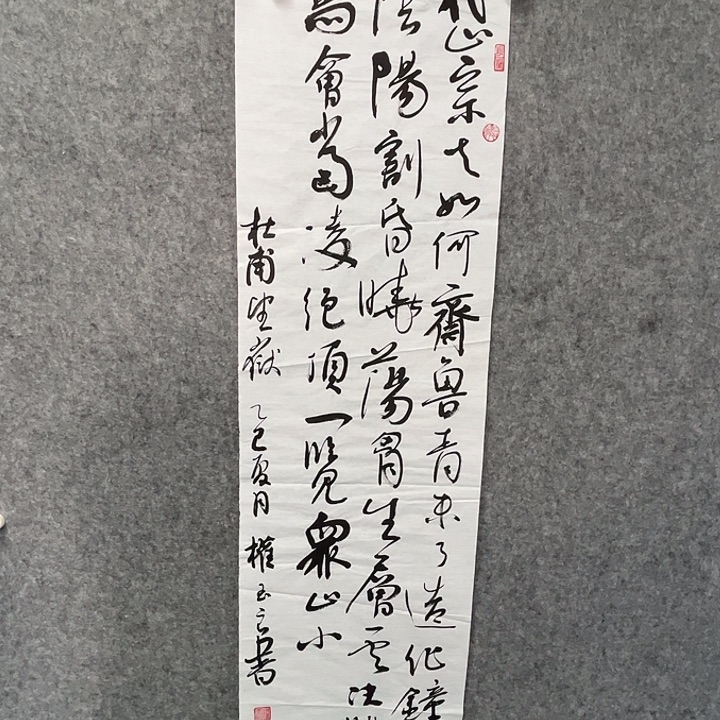 岱宗夫如何齊魯青未了造化鐘
陰陽割昏曉蕩胷生層雲決
鳥會當凌絕頂一覽衆山小
杜甫望嶽 乙巳夏月 權玉言書